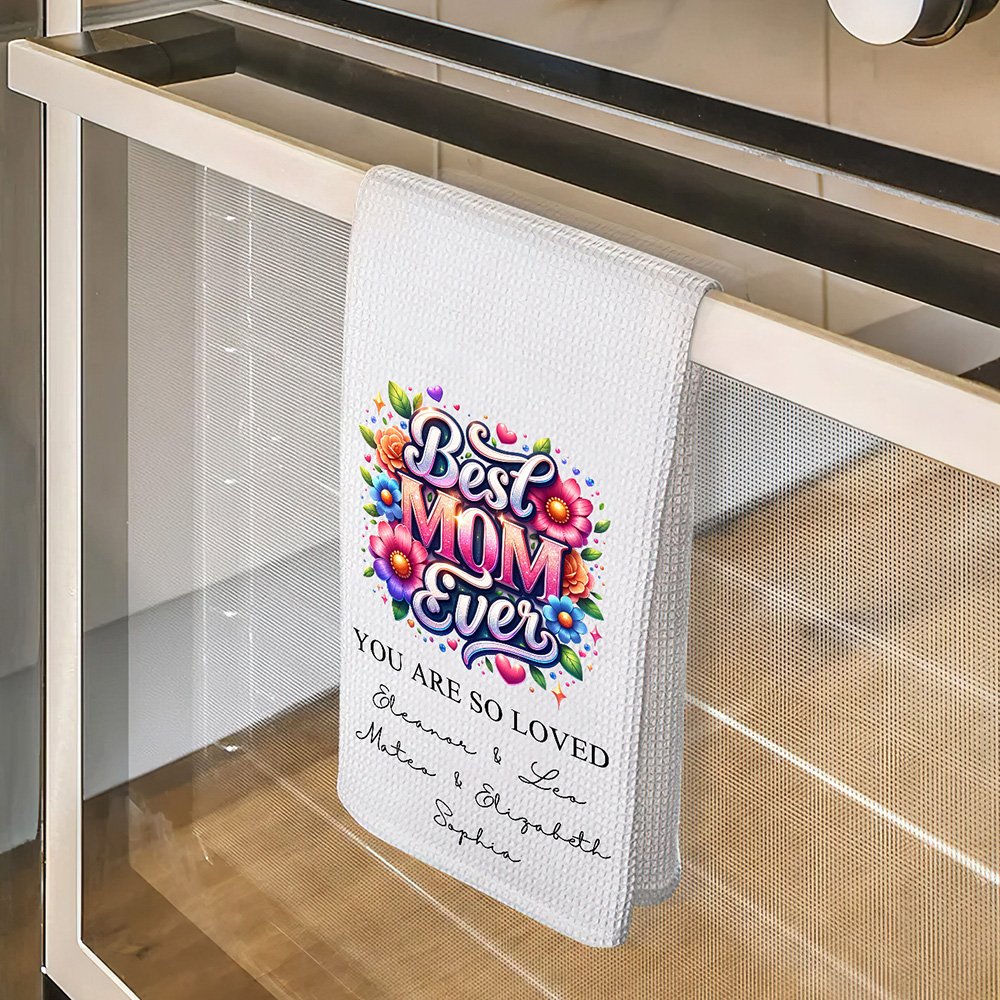 Best
MOM
Ever
YOU ARE SO LOVED
Eleanor & Leo
Mateo & Elizabeth
Sophia